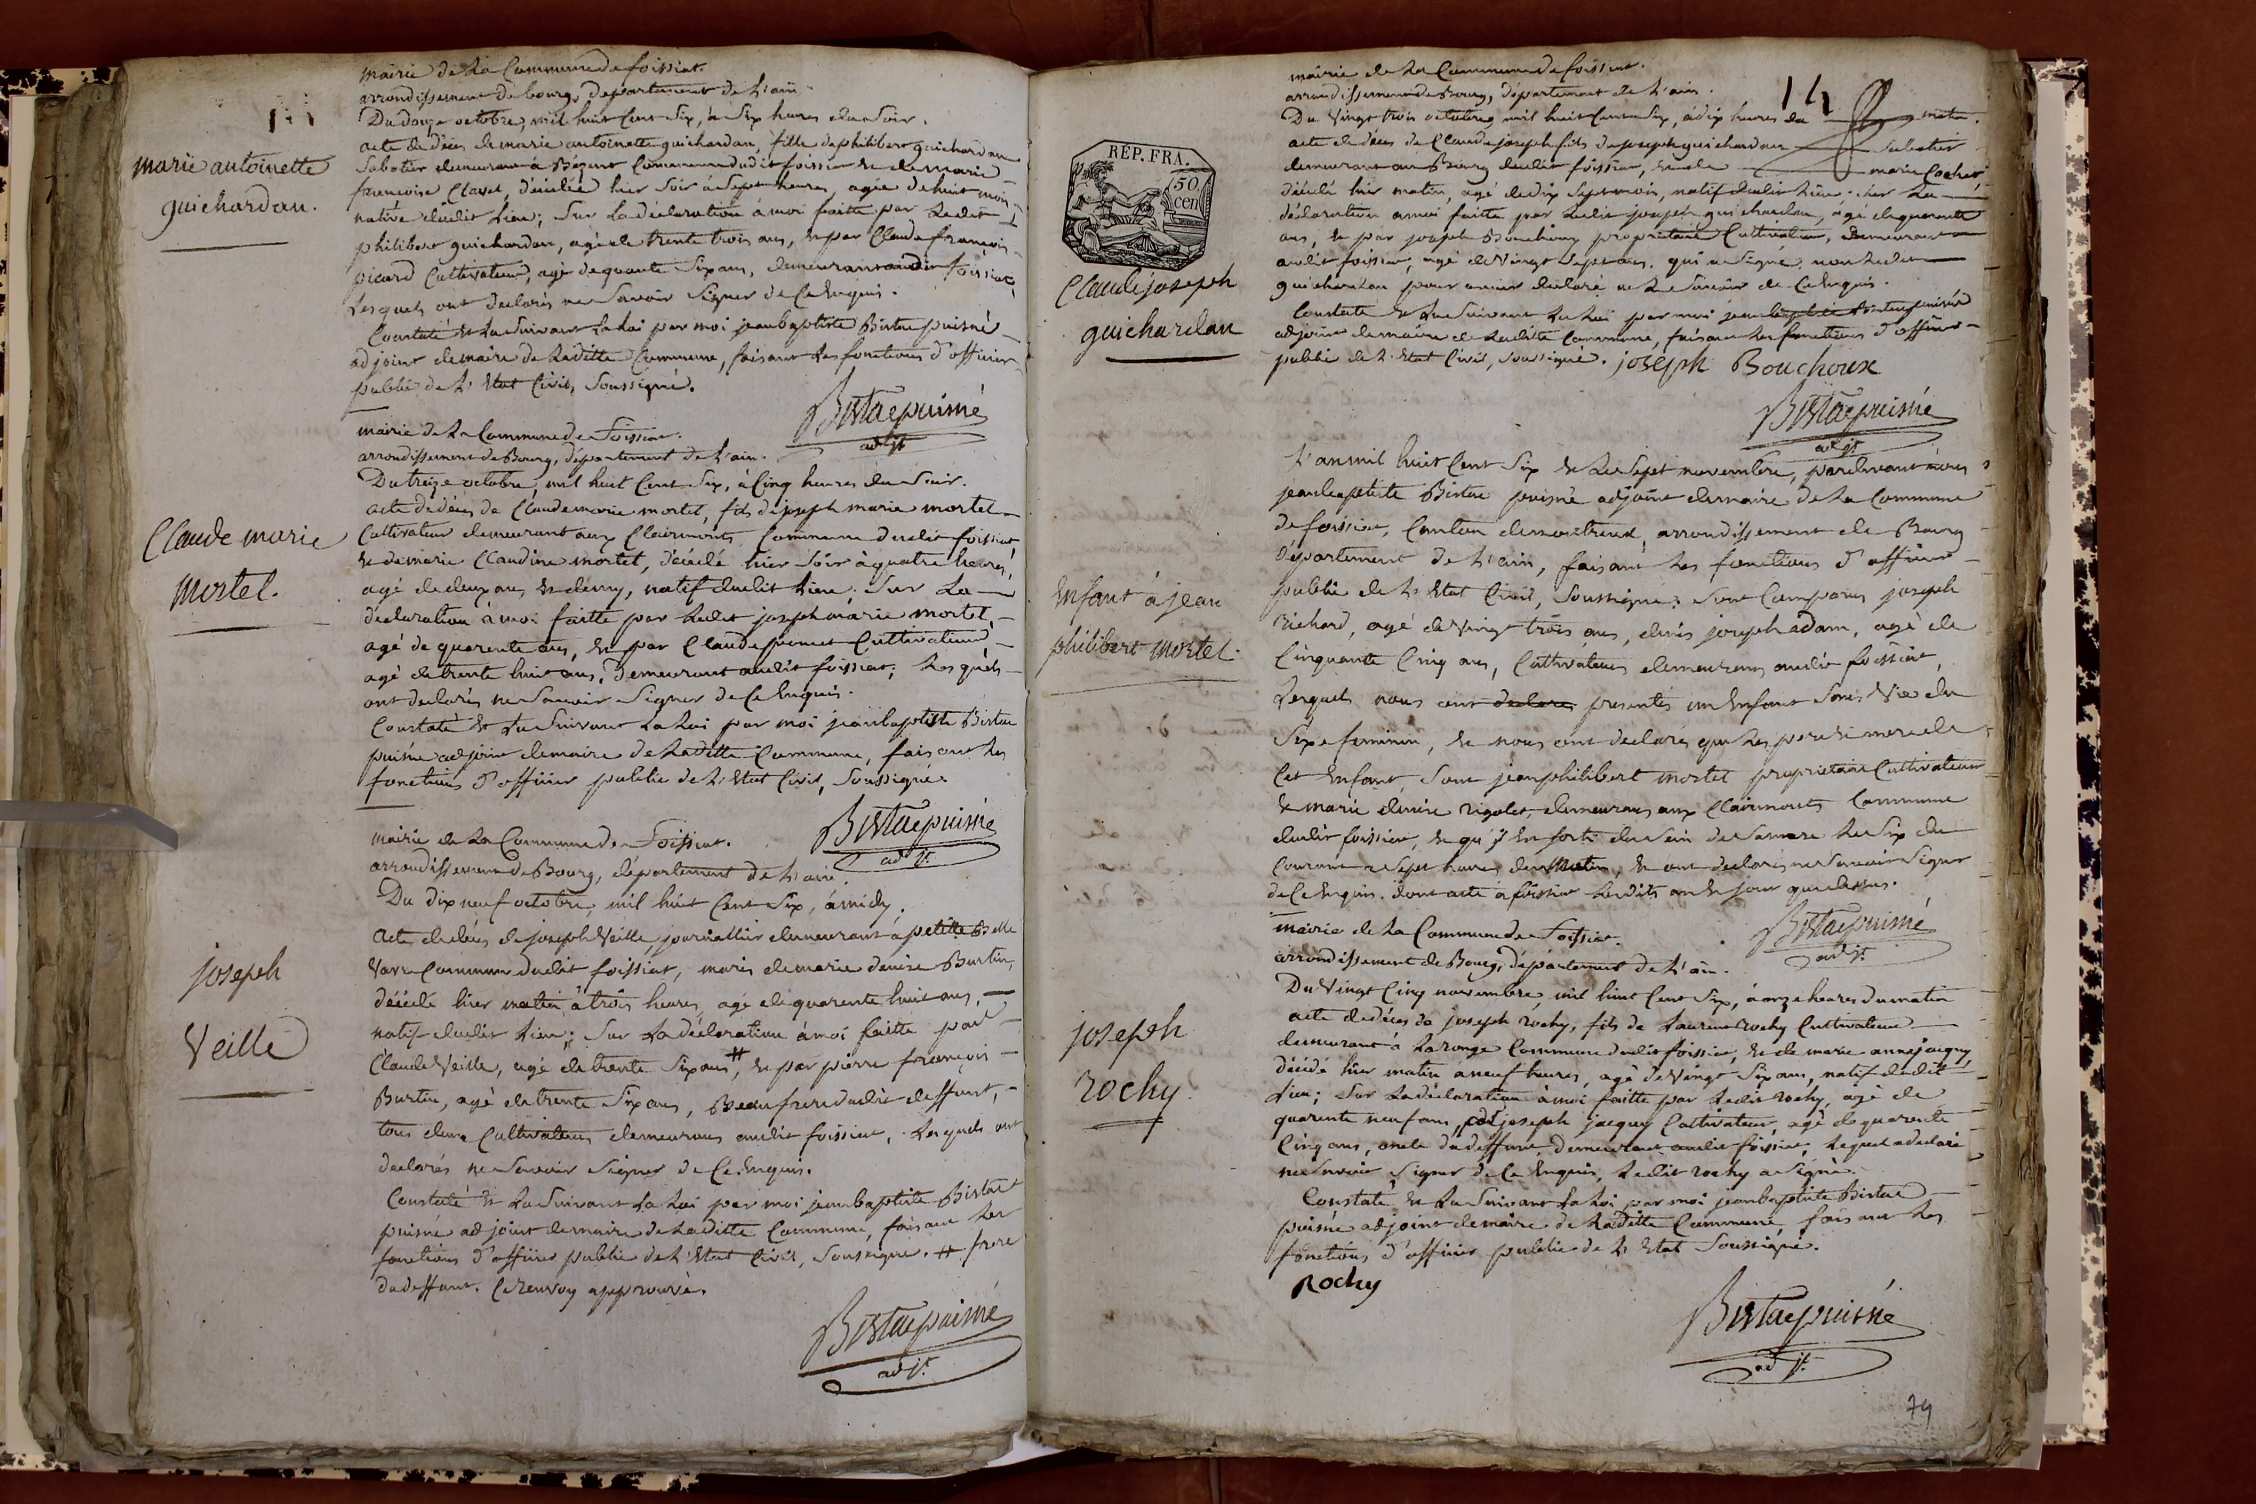 mairie de La Commune de foissiat.
arrondissement de bourg, departement de L'ain.
Du douze octobre, mil huit Cent Six, à Six heures du Soir.
acte de décès de marie antoinette guichardan, fille de philibert guichardan
Sabotier demeurant à Commune dudit foissiat et de marie
françoise Clavel, décédée hier Soir à Sept heures, agée de huit mois
native dudit Lieu; Sur La déclaration à moi faitte par Ledit
philibert guichardan, agé de trente trois ans, et par Claude françois
picard Cultivateur, agé de quarante Six ans, demeurants audit foissiat,
Lesquels ont declarés ne Savoir Signer de Ce Enquis.
Constaté et Lu Suivant La Loi par moi jean baptiste Bistac puisné
adjoint de maire de Laditte Commune, faisant Les fonctions d'officier
public de L'Etat Civil, Soussigné.
Bistac puisné
adjt.
marie antoinette
guichardan.
mairie de La Commune de Foissiat.
arrondissement de Bourg, département de L'ain.
Du treize octobre, mil huit Cent Six, à Cinq heures du Soir.
acte de décès de Claude marie mortel, fils de joseph marie mortel
Cultivateur demeurant aux Clairmonts Commune dudit foissiat
et de marie Claudine mortel, décédé hier Soir à quatre heures,
agé de deux ans et demy, natif dudit Lieu. Sur La
déclaration à moi faitte par Ledit joseph marie mortel,
agé de quarente ans, et par Claude Cultivateur
agé de trente huit ans, demeurant audit foissiat; Lesquels
ont declarés ne Savoir Signer de Ce Enquis.
Constaté et Lu Suivant La Loi par moi jean baptiste Bistac
puisné adjoint de maire de Laditte Commune, faisant Les
fonctions d'officier public de L'Etat Civil, Soussigné.
Bistac puisné
adjt.
Claude marie
Mortel.
mairie de La Commune de Foissiat.
arrondissement de Bourg, département de L'ain.
Du dix neuf octobre, mil huit Cent Six, à midy,
Acte de décès de joseph Veille, journallier demeurant à petitte Belle
Vavre Commune dudit foissiat, maris de marie denise Burtin,
décédé hier matin à trois heures, agé de quarente huit ans,
natif dudit Lieu; Sur La déclaration à moi faitte par
Claude Veille, agé de trente Six ans #, et par pierre françois
Burtin, agé de trente Six ans, Beau frere dudit deffunt,
tous deux Cultivateurs demeurans audit foissiat, Lesquels ont
declarés ne Savoir Signer de Ce Enquis.
Constaté et Lu Suivant La Loi par moi jean baptiste Bistac
puisné adjoint de maire de Laditte Commune, faisant Les
fonctions d'officier public de L'Etat Civil, Soussigné. # frere
du deffunt. Ce renvoy approuvé.
Bistac puisné
adjt.
joseph
Veille
mairie de La Commune de foissiat.
arrondissement de Bourg, département de L'ain.
14
Du Vingt trois octobre mil huit Cent Six, à dix heures du matin.
acte de décès de Claude joseph fils de joseph guichardan Sabotier
demeurant au Bourg dudit foissiat, et de marie Cochet,
décédé hier matin, agé de dix Sept mois, natif dudit Lieu; Sur La
déclaration à moi faitte par Ledit joseph guichardan, agé de quarante
ans, et par joseph Bouchoux proprietaire Cultivateur, demeurant
audit foissiat, agé de Vingt Sept ans, qui a Signé, non Ledit
guichardan pour avoir declaré ne Le Savoir de Ce Enquis.
Constaté et Lu Suivant La Loi par moi jean baptiste Bistac puisné
adjoint de maire de Laditte Commune, faisant Les fonctions d'officier
public de L'Etat Civil, Soussigné. joseph Bouchoux
Bistac puisné
adjt.
RÉP. FRA.
50
cen
Claude joseph
guichardan
L'an mil huit Cent Six et Le Sept novembre, pardevant nous
jean baptiste Bistac puisné adjoint de maire de La Commune
de foissiat, Canton de montrevel, arrondissement de Bourg
Département de L'ain, faisant Les fonctions d'officier
public de L'Etat Civil, Soussigné, Sont Comparus joseph
Richard, agé de Vingt trois ans, denis joseph adam, agé de
Cinquante Cinq ans, Cultivateurs demeurans audit foissiat,
Lesquels nous ont declarés presentés un Enfant Sans Vie du
Sexe feminin, et nous ont declarés que Les pere et mere de
Cet Enfant, Sont jean philibert mortel proprietaire Cultivateur
et marie denise rigolet, demeurans aux Clairmonts Commune
dudit foissiat, et qu'il Est Sorti du Sein de Sa mere Le Six du
Courant a Sept heures du Matin, et ont declarés ne Savoir Signer
de Ce Enquis. dont acte a foissiat Lesdits an et jour que dessus.
Bistac puisné
adjt.
Enfant à jean
philibert Mortel.
mairie de La Commune de Foissiat.
arrondissement de Bourg, département de L'ain.
Du Vingt Cinq novembre, mil huit Cent Six, à onze heures du matin
acte de décès de joseph rochy, fils de Laurent rochy Cultivateur
demeurant a Laronge Commune dudit foissiat, et de marie anne jacquy,
décédé hier matin à neuf heures, agé de Vingt Six ans, natif dudit
Lieu; Sur La déclaration à moi faitte par Ledit rochy, agé de
quarente neuf ans, et joseph jacquy Cultivateur, agé de quarente
Cinq ans, oncle du deffunt, demeurant audit foissiat, Lequel a declaré
ne Savoir Signer de Ce Enquis, Ledit rochy a Signé.
Constaté et Lu Suivant La Loi par moi jean baptiste Bistac
puisné adjoint de maire de Laditte Commune, faisant Les
fonctions d'officier public de L'Etat Soussigné.
Rochy
Bistac puisné
adjt.
joseph
rochy.
74